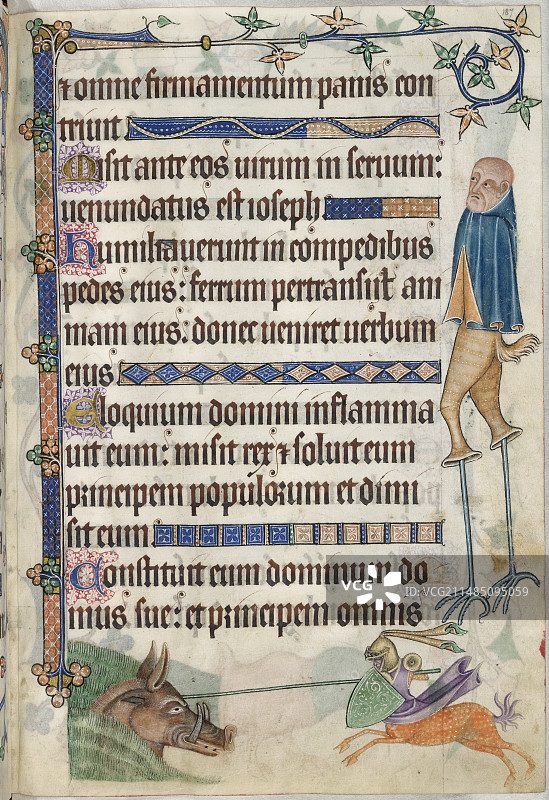 187
⁊ omne firmamentum panis con
triuit.
Misit ante eos uirum in seruum:
uenundatus est ioseph.
Humiliauerunt in compedibus
pedes eius: ferrum pertransiit ani
mam eius: donec ueniret uerbum
eius
Eloquium domini inflamma
uit eum: misit rex ⁊ soluit eum
principem populorum et dimi
sit eum.
Constituit eum dominum do
mus sue: et principem omnis
VCG
VCG211485095059